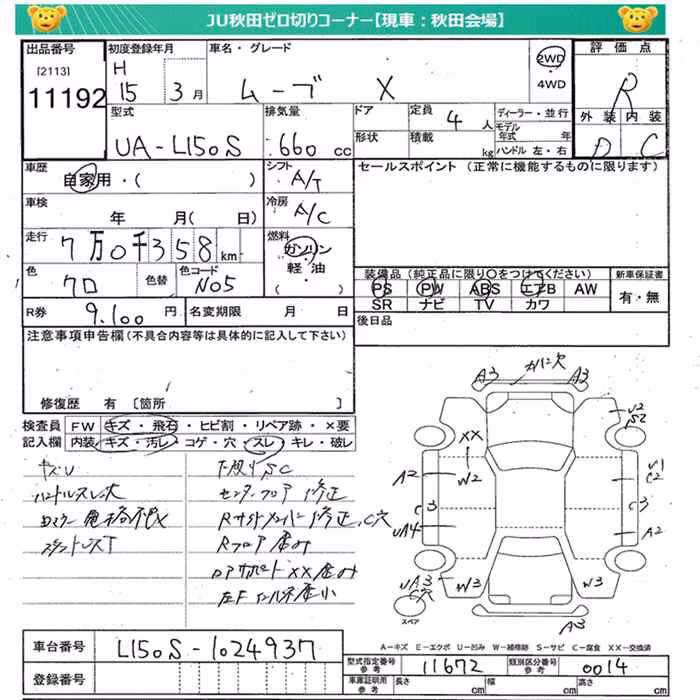 JU秋田ゼロ切りコーナー【現車：秋田会場】
出品番号 初度登録年月 車名・グレード 2WD 評価点
[2113] H 4WD R
11192 15 3月 ムーブ X 外装 内装
型式 排気量 ドア 定員 4人 ディーラー・並行 D C
モデル年式 年
UA-L150S 660cc 形状 積載 kg ハンドル 左・右
車歴 自家用・( ) シフト A/T セールスポイント (正常に機能するものに限ります)
車検 年 月( 日) 冷房 A/C
走行 7万0千358km 燃料 ガソリン・軽油
色 クロ 色替 色コード N05 装備品 (純正品に限り○をつけてください) 新車保証書
PS PW ABS エアB AW 有・無
SR ナビ TV カワ
R券 9.100円 名変期限 月 日 後日品
注意事項申告欄(不具合内容等は具体的に記入して下さい)
修復歴 有 [箇所 ]
検査員 FW キズ・飛石・ヒビ割・リペア跡・×要
記入欄 内装 キズ・汚レ・コゲ・穴・スレ・キレ・破レ
下廻りSC
ハンドルスレ大 センターフロア 修正
Rサイドメンバー修正、C穴
Rフロア 歪み
XX歪み
A3 A3
U2
S2
XX
W2
A2 U1
C2
C3 3
UA4 A2
UA3
C穴
W3 W3
スペア
A3
A-キズ E-エクボ U-凹み W-補修跡 S-サビ C-腐食 XX-交換済
車台番号 L150S-1024937
型式指定番号 参考 11672 類別区分番号 参考 0014
登録番号 車庫証明用 参考 長さ cm 幅 cm 高さ cm